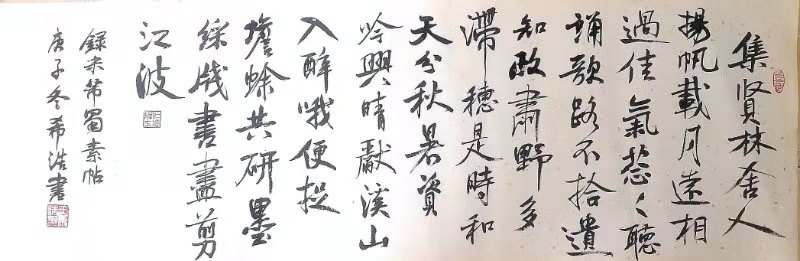 集賢林舍人
揚帆載月遠相
過佳氣葱〻聽
誦歌路不拾遺
知政肅野多
滯穗是時和
天分秋暑資
吟興晴獻溪山
入醉哦便捉
蟾蜍共研墨
綵牋書盡剪
江波
錄米芾蜀素帖
庚子冬希浩書